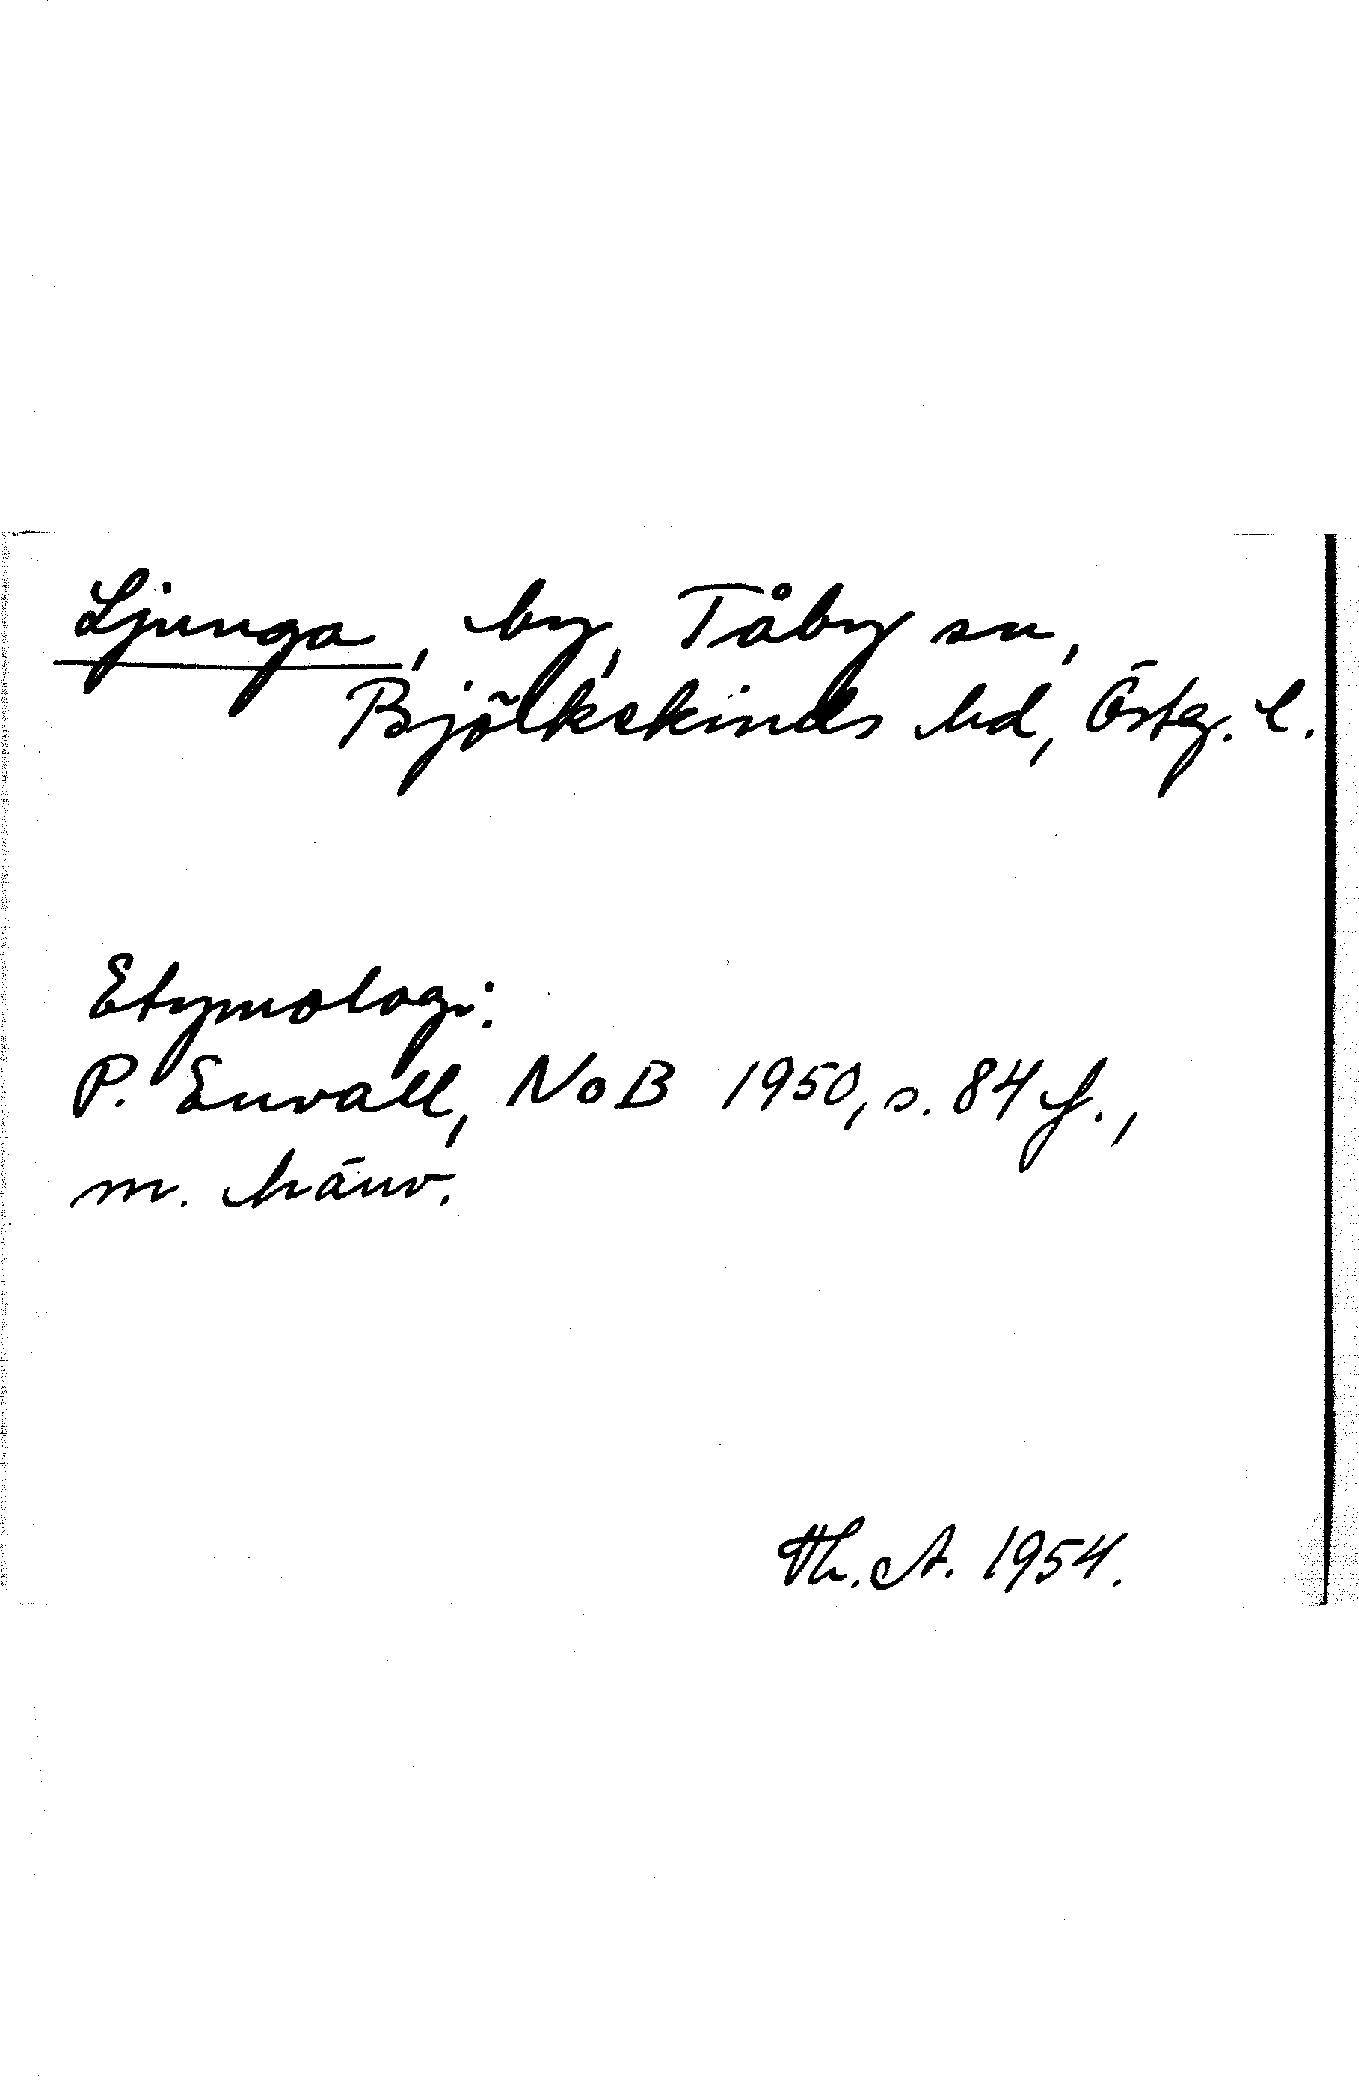 Ljunga, by, Tåby sn,
Björkekinds hd, Östg. l.
Etymologi:
P. Envall, NoB 1950, s. 84 f.,
m. hänv.
Th. A. 1954.